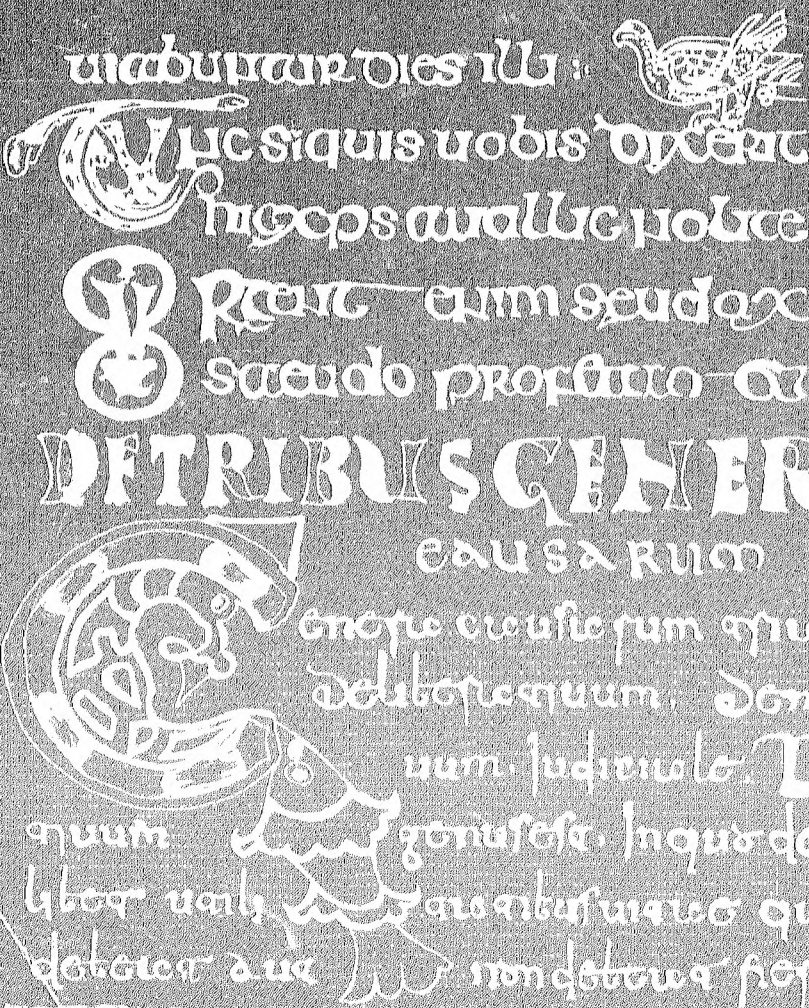 uiabuntur dies illi
Tunc si quis uobis dixerit
hic xps aut illic nolite
Surgent enim seudo x
s et seudo profetae
DE TRIBUS GENER
CAUSARUM
Genera causarum sunt
deliberatiuum. Dem
uum. Iudiciale.
tiuum genus est. In quo de
libet
debeat aut non debeat fie